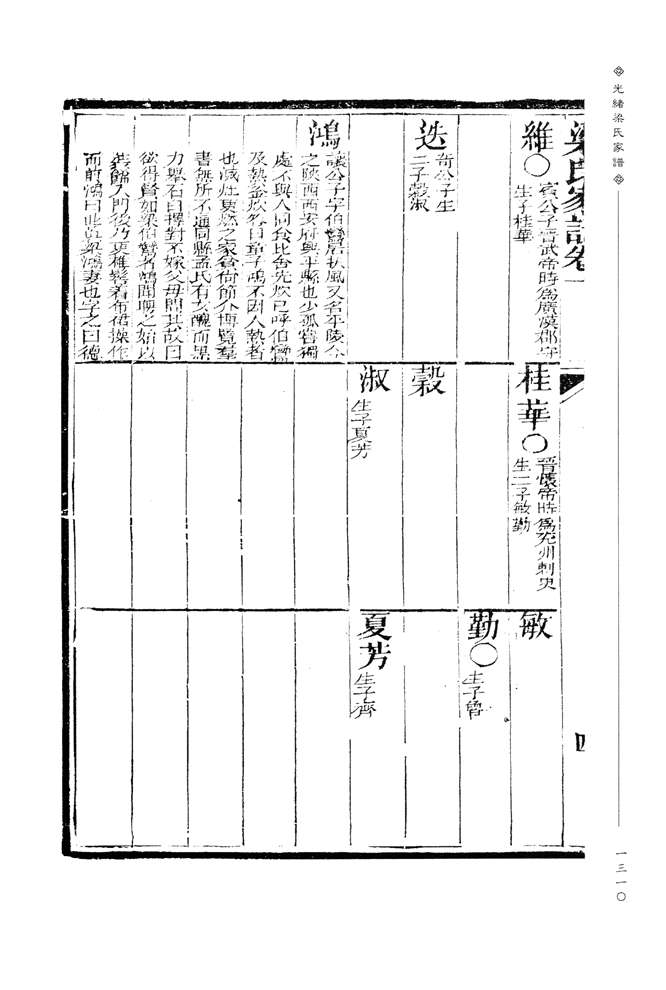 光緒梁氏家譜
一三一〇
梁氏家譜卷一
四
維〇
賓公子晋武帝時爲廣漢郡守
生子桂華
迭
奇公子生
二子穀淑
鴻
讓公子字伯鸞居扶風又名平陵今
之陝西西安府興平縣也少孤嘗獨
處不與人同食比舍先炊已呼伯鸞
及熱釜炊名曰童子鴻不因人熱者
也滅灶更燃之家貧尚節介博覽羣
書無所不通同縣孟氏有女醜而黑
力舉石臼擇對不嫁父母問其故曰
欲得賢如梁伯鸞者鴻聞聘之始以
裝飾入門後乃更椎髻着布裙操作
而前鴻曰此真梁鴻妻也字之曰德
桂華〇
晋懷帝時爲兖州刺史
生二子敏勤
穀
淑
生子夏芳
敏
勤〇
生子曾
夏芳
生子濟